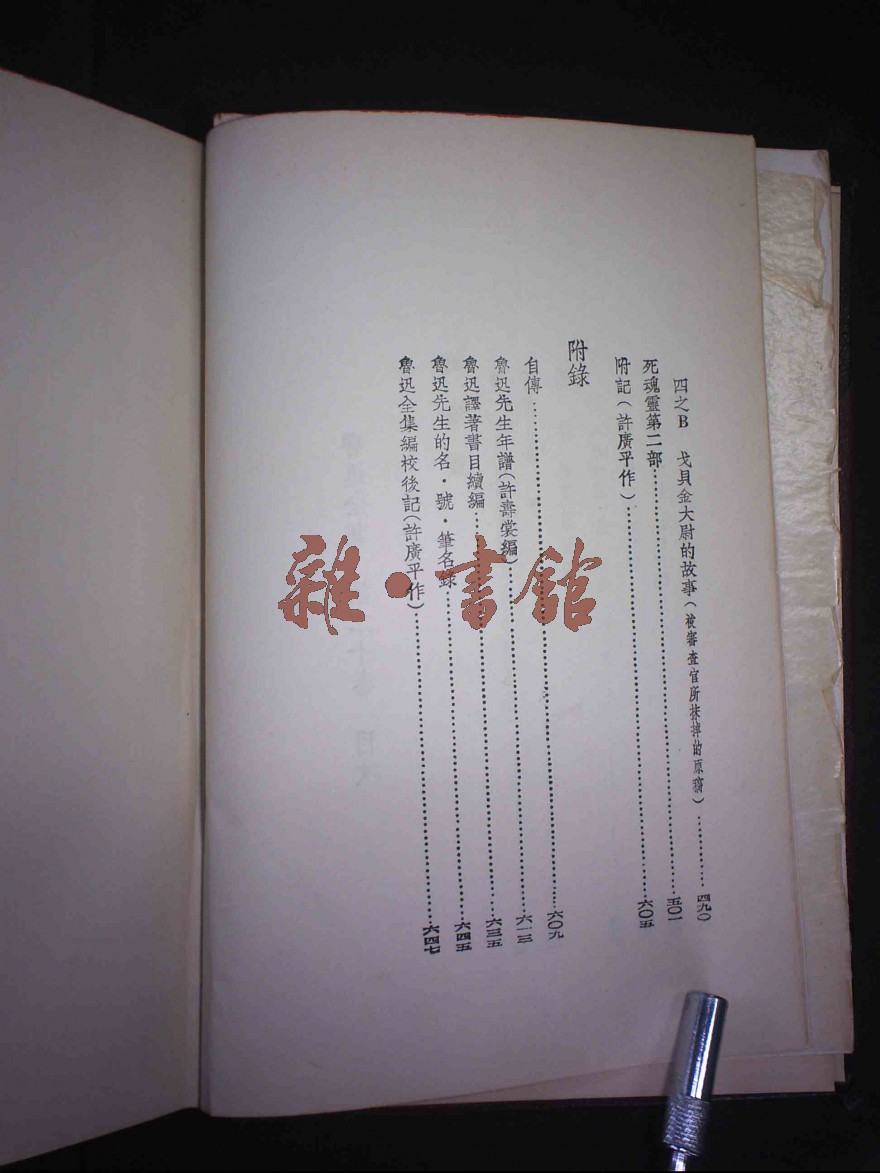 四之B 戈貝金大尉的故事（被審查官所抹掉的原稿）…………四九〇
死魂靈第二部…………五〇一
附記（許廣平作）…………六〇五
附錄
自傳…………六〇九
魯迅先生年譜（許壽裳編）…………六一三
魯迅譯著書目續編…………六三五
魯迅先生的名·號·筆名錄…………六四五
魯迅全集編校後記（許廣平作）…………六四七
雜·書館